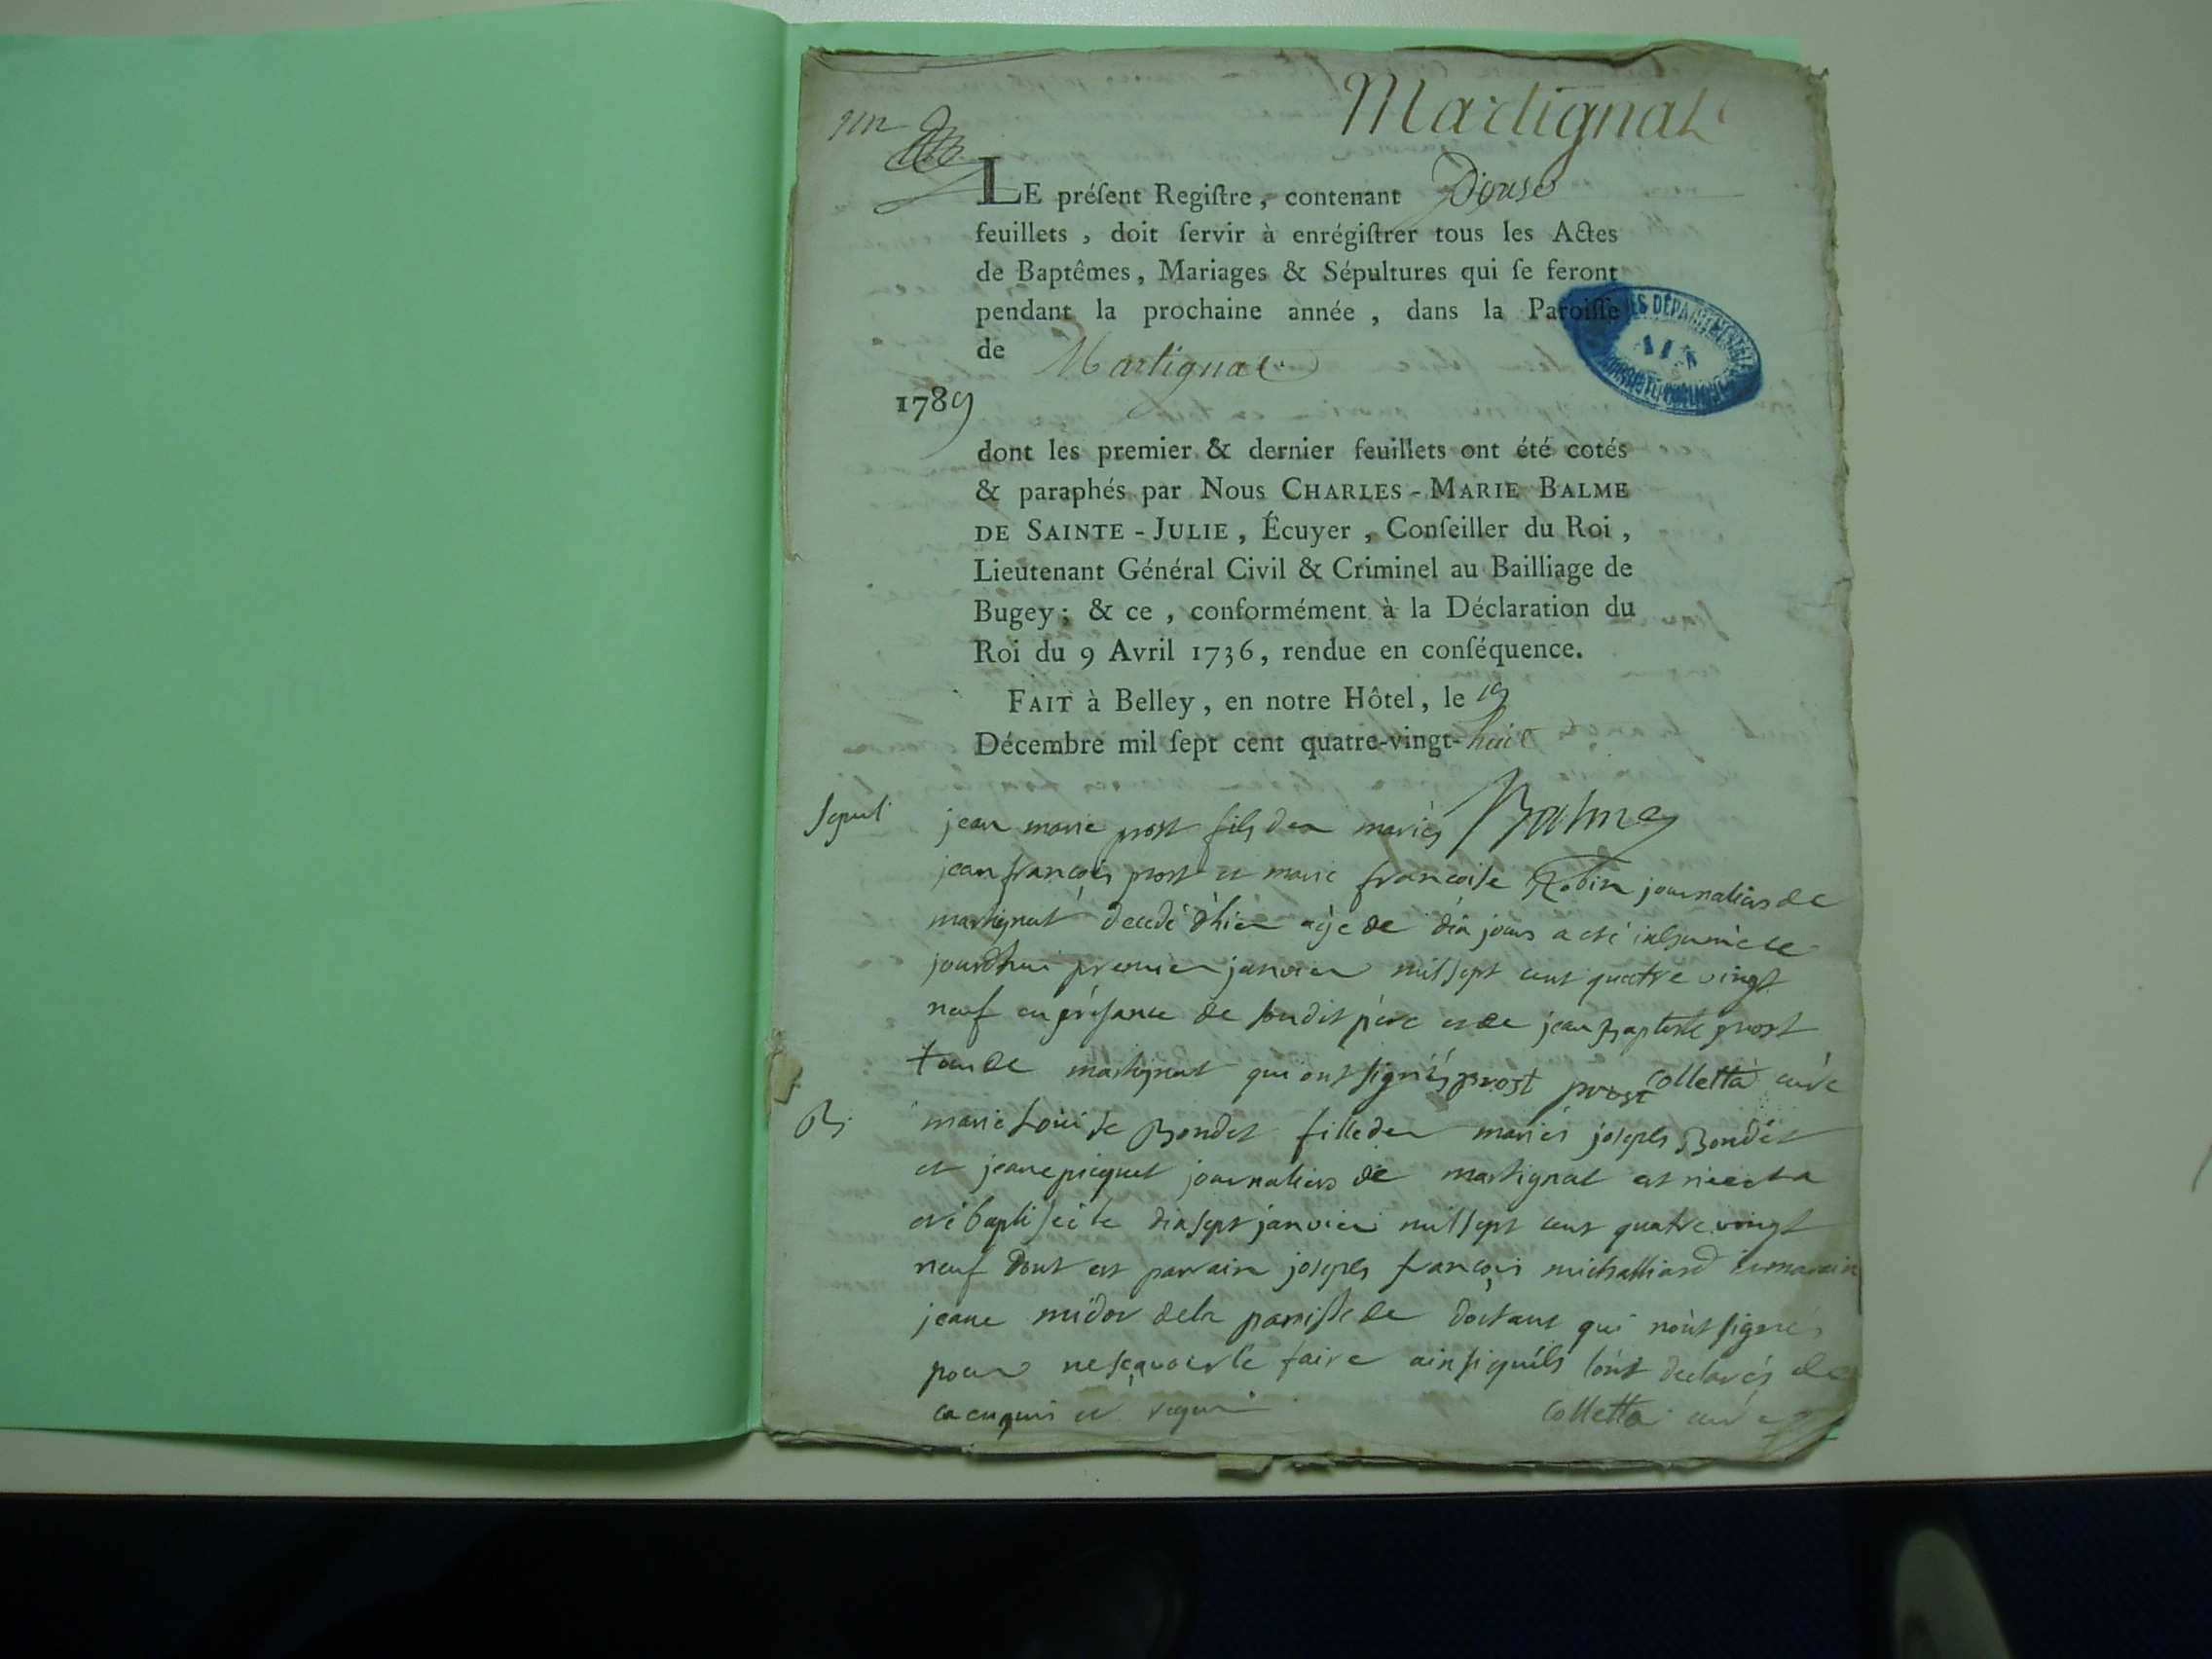 Martignat
un
LE préſent Regiſtre, contenant Douse
feuillets, doit ſervir à enrégiſtrer tous les Actes
de Baptêmes, Mariages & Sépultures qui ſe feront
pendant la prochaine année, dans la Paroiſſe
de Martignat
1789
dont les premier & dernier feuillets ont été cotés
& paraphés par Nous CHARLES-MARIE BALME
DE SAINTE-JULIE, Écuyer, Conſeiller du Roi,
Lieutenant Général Civil & Criminel au Bailliage de
Bugey; & ce, conformément à la Déclaration du
Roi du 9 Avril 1736, rendue en conſéquence.
FAIT à Belley, en notre Hôtel, le 19
Décembre mil ſept cent quatre-vingt-huit
Balme
Sepul
jean marie prost fils des mariés
jean françois prost et marie francoise Robin journaliers de
martignat decedé d'hier agé de dix jours a eté inhumé ce
jourdhui premier janvier mil sept cent quatre vingt
neuf en présance de sondit pére et de jean Baptiste prost
tous de martignat qui ont signés prost prost Colletta curé
B.
marie Louise Bondet fille des mariés joseph Bondet
et jeane picquet journaliers de martignat est née et a
eté baptisée le dix sept janvier mil sept cent quatre vingt
neuf dont est parrain joseph françois michalliard
jeane midor de la parroisse de dortant qui n'ont signés
pour ne sçavoir le faire ainsi qu'ils l'ont declarés de
ce enquis et requis Colletta curé